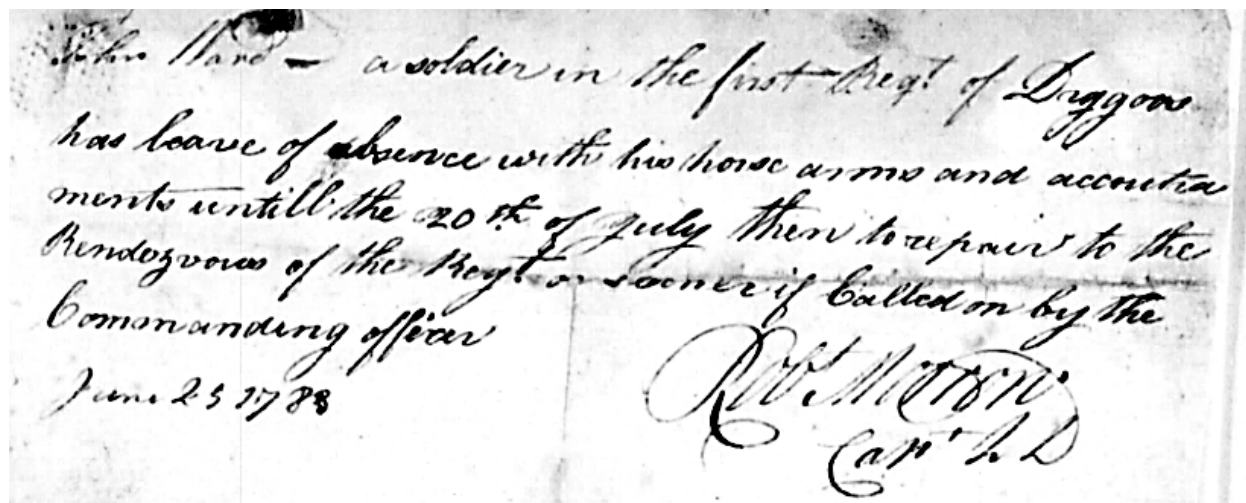 John Ward — a soldier in the first Regt. of Dragoons
has leave of absence with his horse arms and accoutra
ments untill the 20th of July then to repair to the
Rendezvous of the Regt. or sooner if Called on by the
Commanding officer
June 25 1783
Robt.
Capt L D